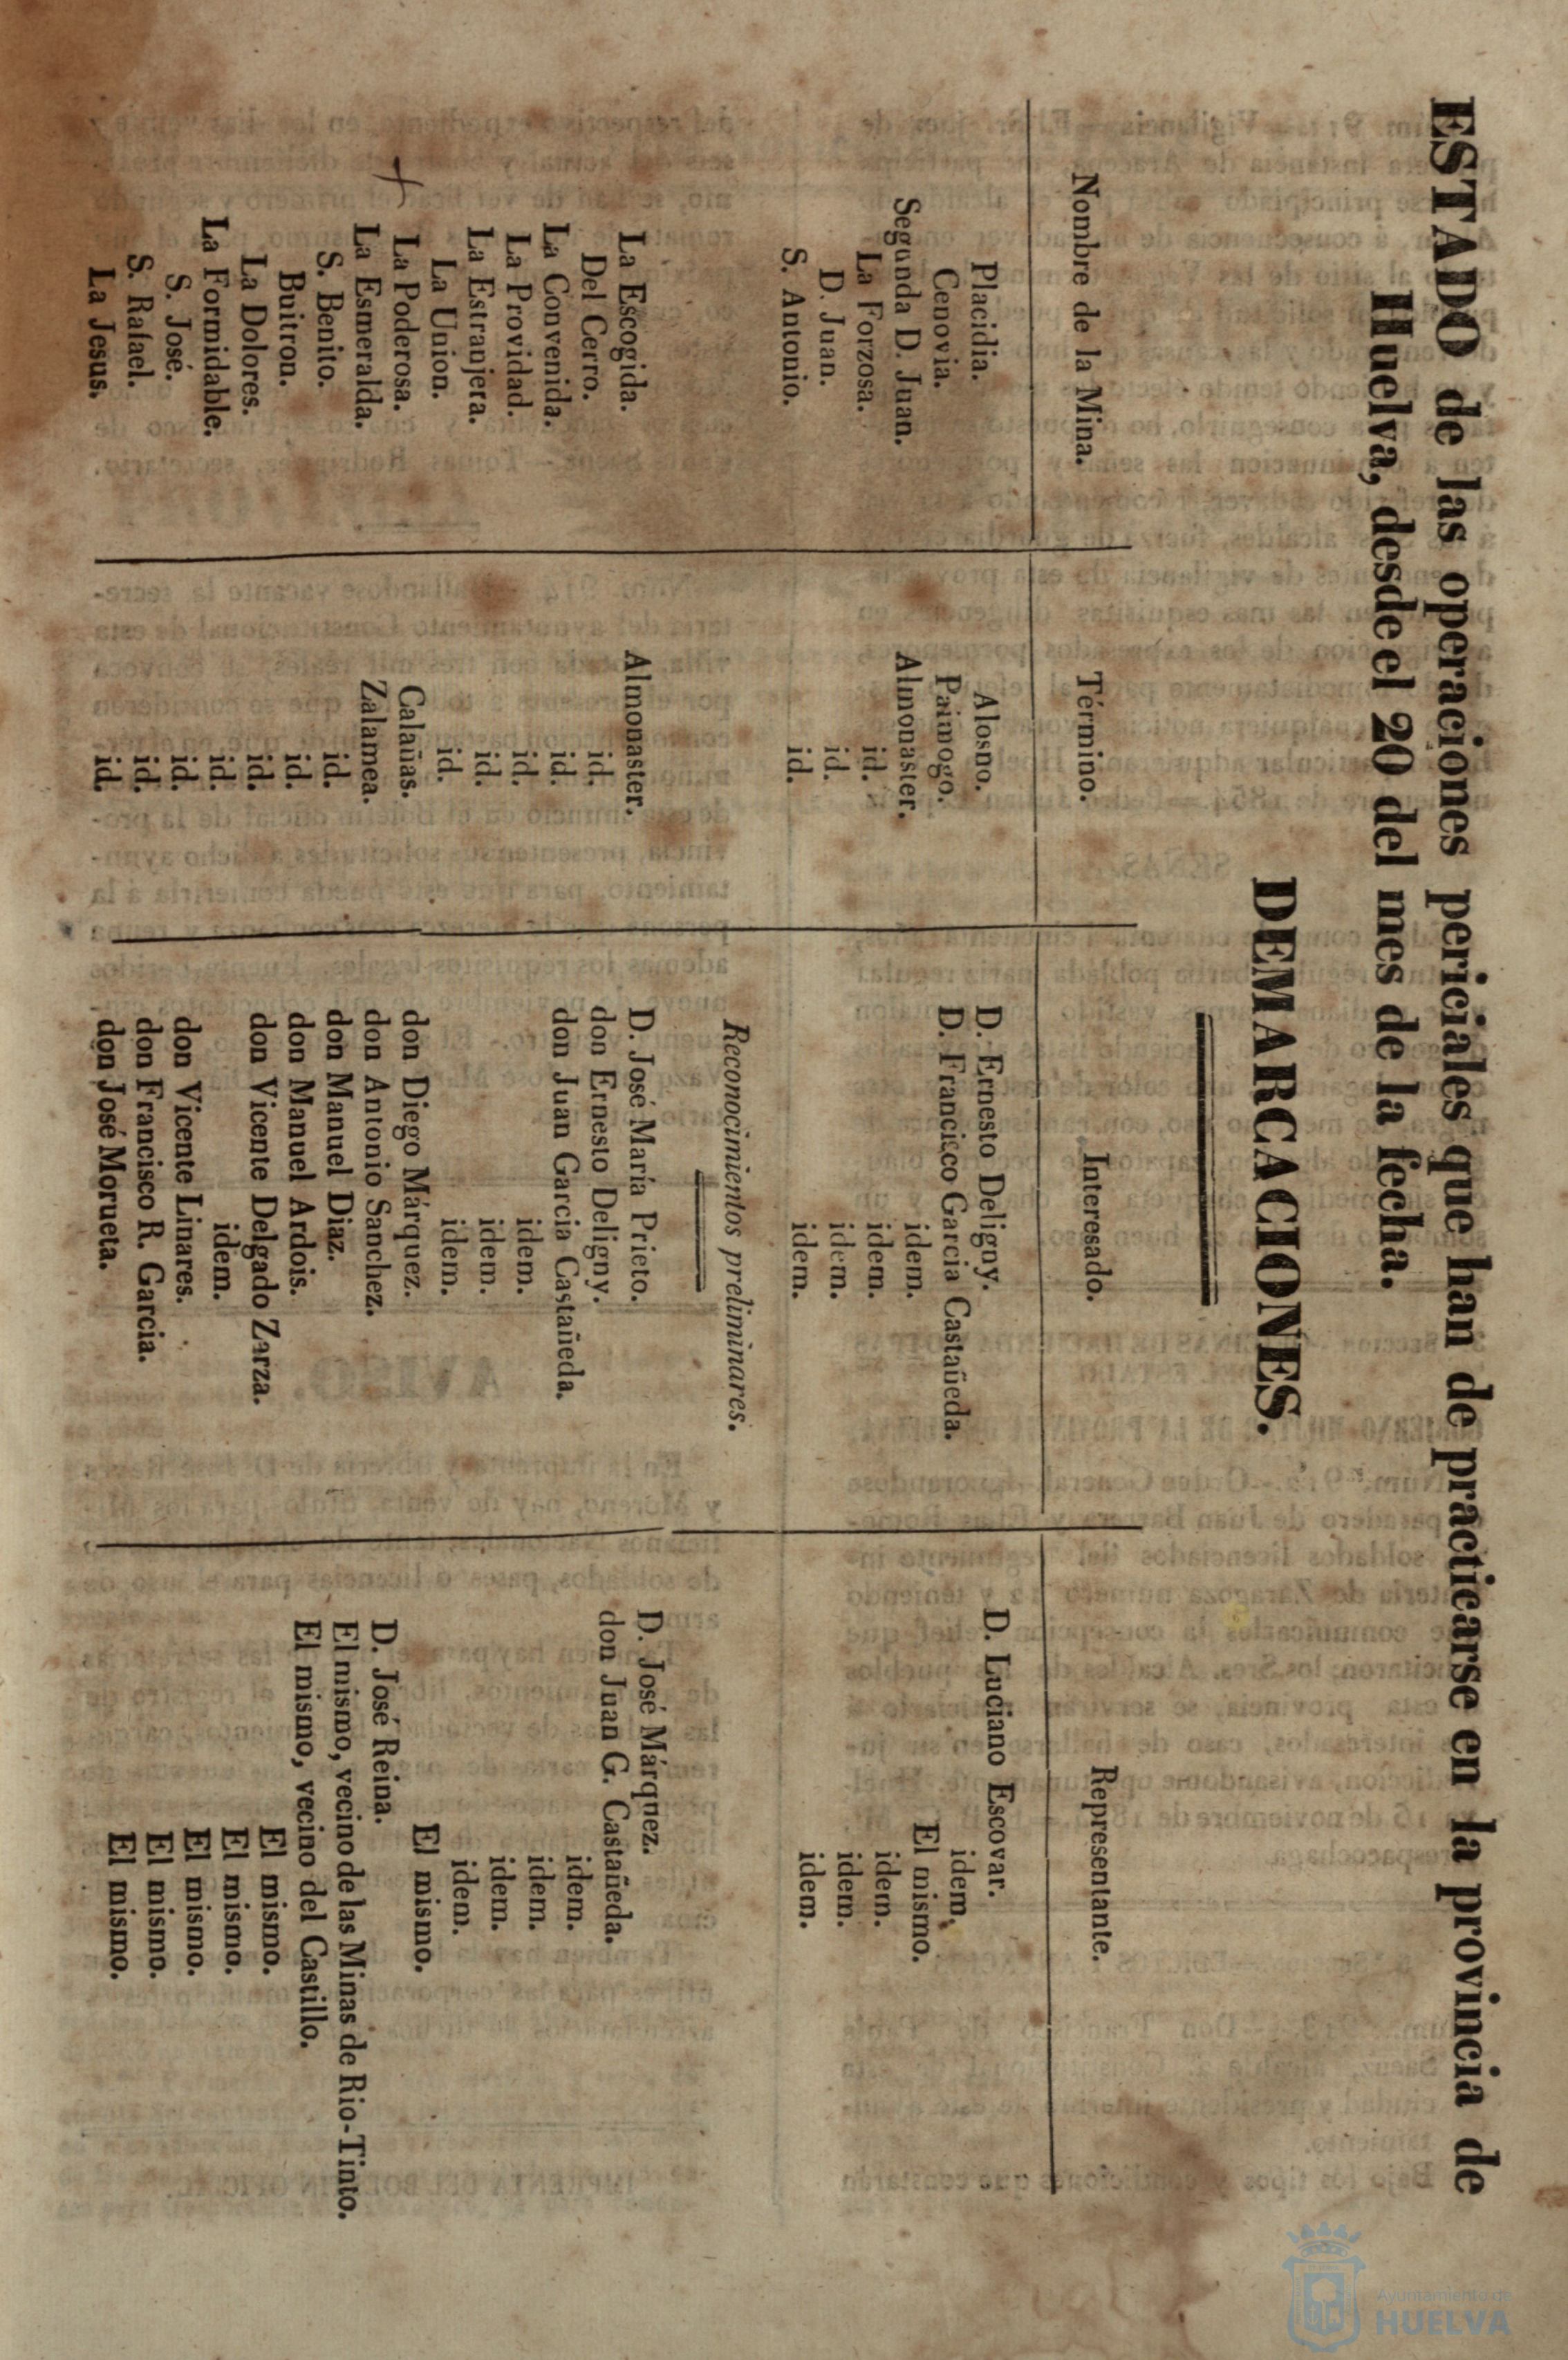 ESTADO de las operaciones periciales que han de practicarse en la provincia de
Huelva, desde el 20 del mes de la fecha.
DEMARCACIONES.
Nombre de la Mina. Término. Interesado. Representante.
Placidia. Alosno. D. Ernesto Deligny. D. Luciano Escovar.
Cenovia. Paimogo. D. Francisco Garcia Castañeda. idem.
Segunda D. Juan. Almonaster. idem. El mismo.
La Forzosa. id. idem. idem.
D. Juan. id. idem. idem.
S. Antonio. id. idem. idem.
Reconocimientos preliminares.
La Escogida. Almonaster. D. José María Prieto. D. José Márquez.
Del Cerro. id. don Ernesto Deligny. don Juan G. Castañeda.
La Convenida. id. don Juan Garcia Castañeda. idem.
La Providad. id. idem. idem.
La Estranjera. id. idem. idem.
La Union. id. idem. idem.
La Poderosa. Calañas. don Diego Márquez. El mismo.
La Esmeralda. Zalamea. don Antonio Sanchez. D. José Reina.
S. Benito. id. don Manuel Diaz. El mismo, vecino de las Minas de Rio-Tinto.
Buitron. id. don Manuel Ardois. El mismo, vecino del Castillo.
La Dolores. id. don Vicente Delgado Zarza. El mismo.
La Formidable. id. idem. El mismo.
S. José. id. don Vicente Linares. El mismo.
S. Rafael. id. don Francisco R. Garcia. El mismo.
La Jesus. id. don José Morueta. El mismo.
Ayuntamiento de
HUELVA